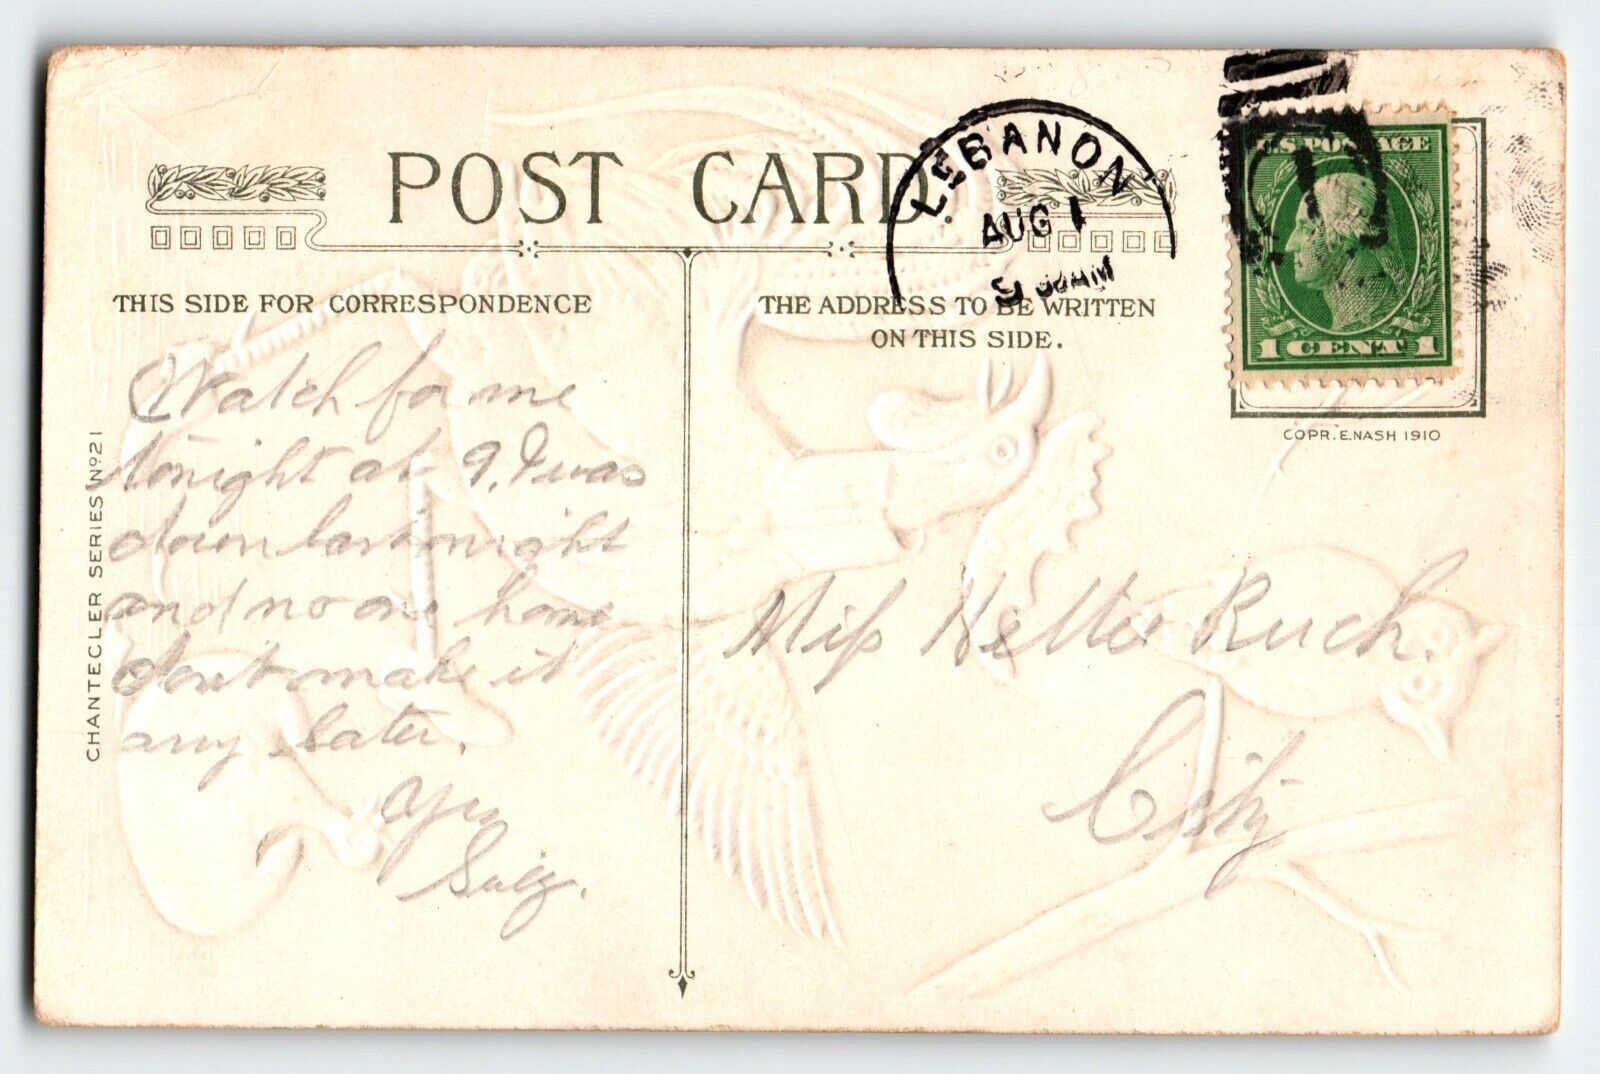 POST CARD.
LEBANON
AUG 1
9 30 AM
U.S. POSTAGE
1 CENT 1
COPR. E. NASH 1910
THIS SIDE FOR CORRESPONDENCE
THE ADDRESS TO BE WRITTEN
ON THIS SIDE.
CHANTECLER SERIES Nº 21
Watch for me
tonight at 9. I was
down last night
and no one home
don't make it
any later.
Miss Nettie Ruch.
City